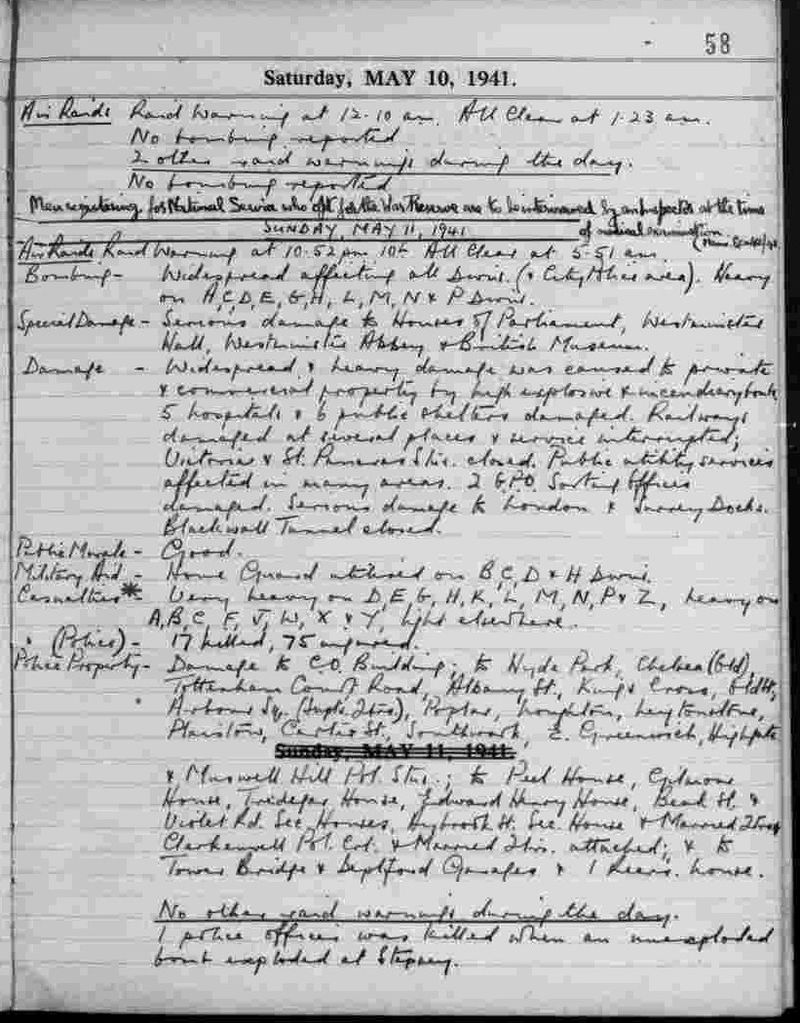 58
Saturday, MAY 10, 1941.
Air Raids Raid Warning at 12.10 am. All Clear at 1.23 am.
No bombing reported
2 other raid warnings during the day.
No bombing reported
Men registering for National Service who opt for the War Reserve are to be interviewed by an Inspector at the time
of medical examination
SUNDAY, MAY 11, 1941
Air Raids Raid Warning at 10.52 pm 10th All Clear at 5.51 am.
Bombing - Widespread affecting all Divns. (& City Police area). Heavy
on A, C, D, E, G, H, L, M, N & P Divns.
Special Damage - Serious damage to Houses of Parliament, Westminster
Hall, Westminster Abbey & British Museum.
Damage - Widespread & heavy damage was caused to private
& commercial property by high explosive & incendiary bombs
5 hospitals & 6 public shelters damaged. Railways
damaged at several places & service interrupted;
Victoria & St. Pancras Stns. closed. Public utility services
affected in many areas. 2 G.P.O. Sorting Offices
damaged. Serious damage to London & Surrey Docks.
Blackwall Tunnel closed.
Public Morale - Good.
Military Aid - Home Guard utilised on B, C, D & H Divns.
Casualties * - Very heavy on D, E, G, H, K, L, M, N, P & Z, heavy on
A, B, C, F, J, W, X & Y, light elsewhere.
" (Police) - 17 killed, 75 injured.
Police Property - Damage to C.O. Building; to Hyde Park, Chelsea (Old),
Tottenham Court Road, Albany St., Kings Cross, Old St,
Arbour Sq. (Supts Qtrs), Poplar, Loughton, Leytonstone,
Plaistow, Carter St., Southwark, E. Greenwich, Highgate
Sunday, MAY 11, 1941.
& Muswell Hill Pol. Stns.; to Peel House, Gilmour
House, Tredegar House, Edward Henry House, Beak St. &
Violet Rd. Sec. Houses, St. Sec. House & Married Qtrs,
Clerkenwell Pol. Crt. & Married Qtrs. attached; & to
Tower Bridge & Deptford Garages & 1 house.
No other raid warnings during the day.
1 police officer was killed when an unexploded
bomb exploded at Stepney.